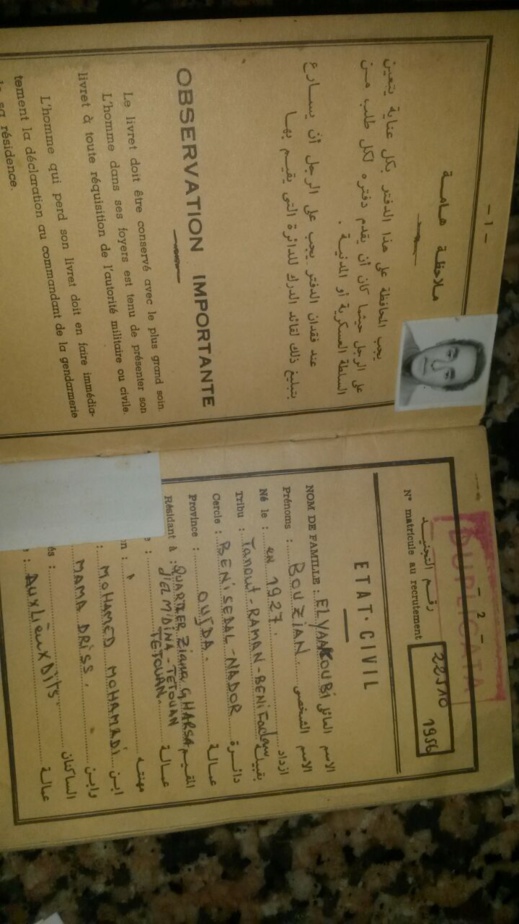 - 1 -
ملاحظة هامة
يجب المحافظة على هذا الدفتر بكل عناية يتعين
على الرجل حيثما كان أن يقدم دفتره لكل طلب من
السلطة العسكرية أو المدنية .
عند فقدان الدفتر يجب على الرجل أن يسارع
بتبليغ ذلك لقائد الدرك للدائرة التي يقيم بها
OBSERVATION IMPORTANTE
Le livret doit être conservé avec le plus grand soin.
L'homme dans ses foyers est tenu de présenter son
livret à toute réquisition de l'autorité militaire ou civile.
L'homme qui perd son livret doit en faire immédia-
tement la déclaration au commandant de la gendarmerie
sa résidence.
- 2 -
DUPLICATA
رقم التجنيد
N° matricule au recrutement
22.110
1956
ETAT-CIVIL
NOM DE FAMILLE : EL YAAKOUBI الاسم العائلي
Prénoms : BOUZIAN. الاسم الشخصي
Né le : en 1927. ازداد
Tribu : بقبيلة
Cercle : BENISEDAL-NADOR دائرة
Province : OUJDA. عمالة
Résidant à : QUARTIER Ziana GHARSA المقيم
DJEL M'DINA-TETOUAN عمالة
TETOUAN.
مهنته
n : MOHAMED MOHAMADI ابن
MAMA DRISS. وابن
الساكنان
és : AUX LIEUX DITS. عمالة